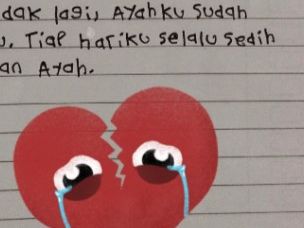 dak lagi, Ayahku sudah
u. Tiap hariku selalu sedih
an Ayah.